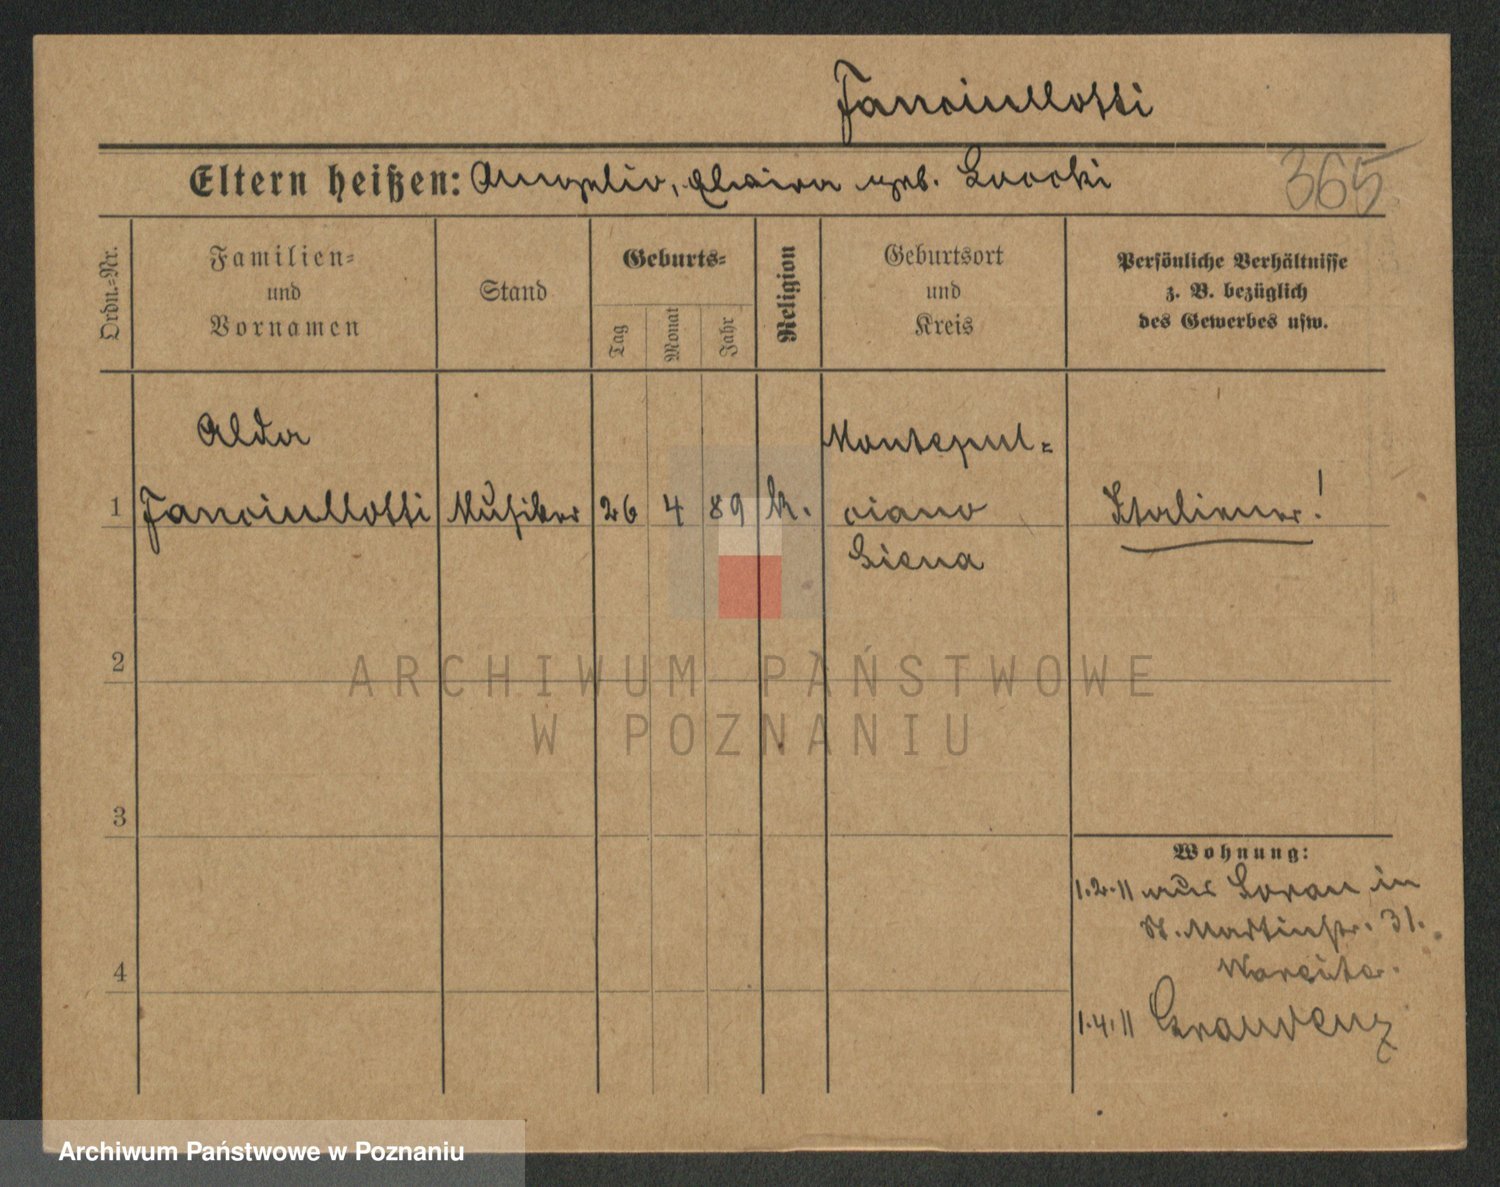 Fanciullotti
Eltern heißen: Angelio, geb.
365
Ordn.=Nr.
Familien=
und
Vornamen
Stand
Geburts=
Tag
Monat
Jahr
Religion
Geburtsort
und
Kreis
Persönliche Verhältnisse
z. B. bezüglich
des Gewerbes usw.
Aldo
Montepul=
1 Fanciullotti Musiker 26 4 89 k. ciano Italiener!
Siena
2
3
4
Wohnung:
1.2.11 aus Soran in
St. Martinstr. 31.
1.4.11 Graudenz
ARCHIWUM PAŃSTWOWE
W POZNANIU
Archiwum Państwowe w Poznaniu